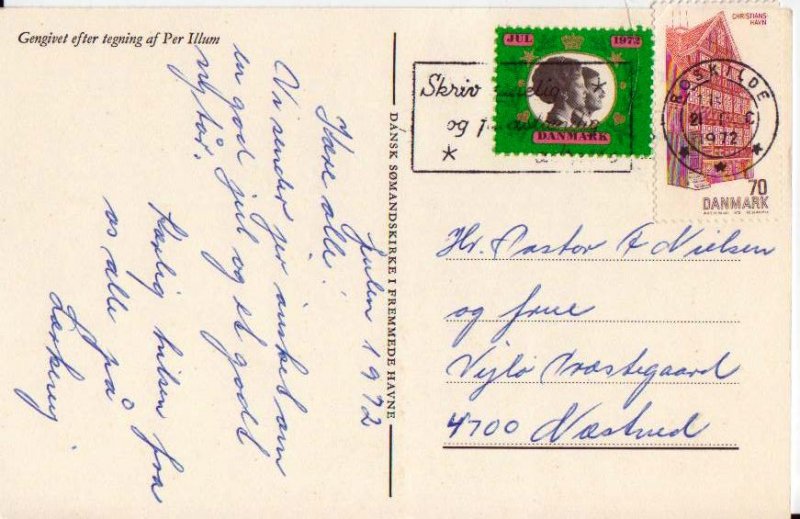 Gengivet efter tegning af Per Illum
Julen 1972
Kære alle!
Vi sender jer ønsket om
en god jul og et godt
nytår.
Kærlig hilsen fra
os alle på
DANSK SØMANDSKIRKE I FREMMEDE HAVNE
JUL 1972
DANMARK
Skriv
og
CHRISTIANS-
HAVN
70
DANMARK
ROSKILDE
21
1972
Hr. Pastor F Nielsen
og frue
Vejlø Præstegaard
4700 Næstved